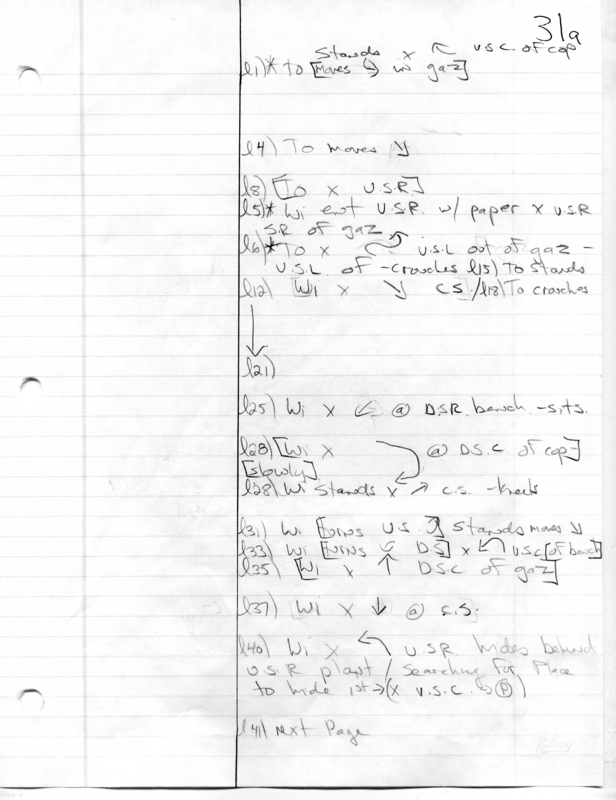 31a
Stands x ↖ U.S.C. of cop
l1)* To [moves ↳ in gaz]
l4) To moves ↘
l8) [To x U.S.R.]
l5)* Wi ent U.S.R. w/ paper x U.S.R
S.R of gaz
l6)* To x U.S.L out of gaz -
U.S.L of - crouches l15) To stands
l12) Wi x ↘ C.S. / l18) To crouches
↓
l21)
l25) Wi x ↙ @ D.S.R. bench - sits.
l28) [Wi x @ D.S.C of cop]
[slowly]
l28) Wi Stands x ↗ C.S. - kneels
l31) Wi [turns U.S.] Stands moves ↘
l33) Wi [turns D.S] x U.S.C [of bench]
l35) [Wi x ↑ D.S.C of gaz]
l37) Wi x ↓ @ C.S.
l40) Wi x ↖ U.S.R hides behind
U.S.R plant / Searching for Place
to hide 1st → (x U.S.C. ↳ Ⓟ)
l41) next Page